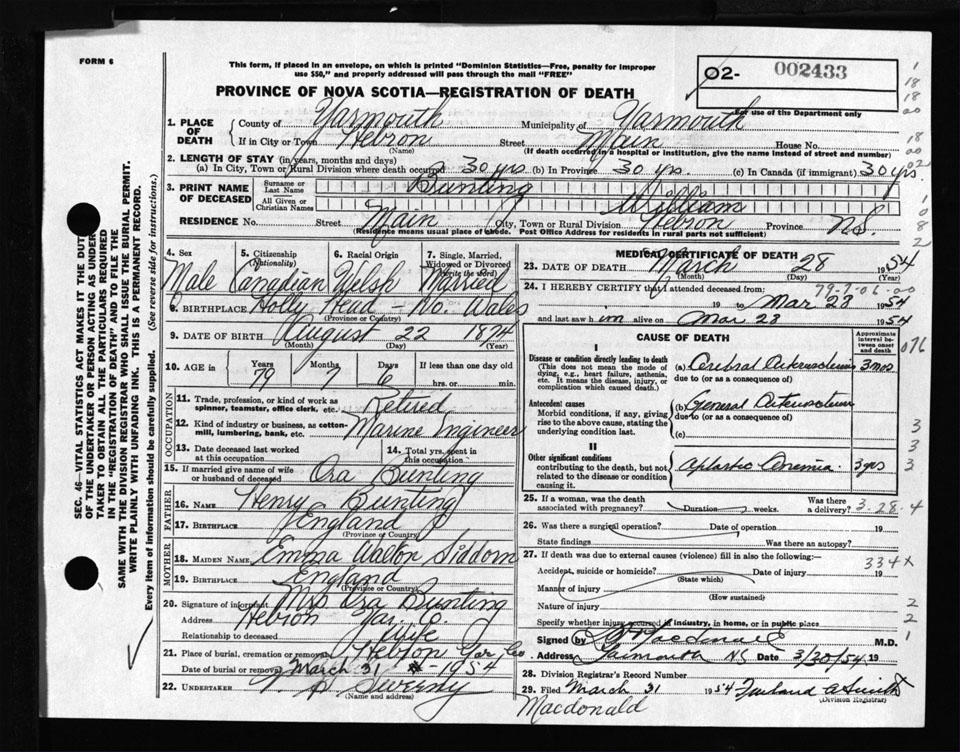 FORM 6
This form, if placed in an envelope, on which is printed "Dominion Statistics—Free, penalty for improper
use $50," and properly addressed will pass through the mail "FREE"
PROVINCE OF NOVA SCOTIA—REGISTRATION OF DEATH
02- 002433
For use of the Department only
1. PLACE OF DEATH { County of Yarmouth Municipality of Yarmouth
If in City or Town Hebron Street Main House No.
(Name) (If death occurred in a hospital or institution, give the name instead of street and number)
2. LENGTH OF STAY (in years, months and days)
(a) In City, Town or Rural Division where death occurred 30 yrs. (b) In Province 30 yrs. (c) In Canada (if immigrant) 30 yrs.
3. PRINT NAME OF DECEASED { Surname or Last Name Bunting
All Given or Christian Names William
RESIDENCE No. Street Main City, Town or Rural Division Hebron Province N.S.
(Residence means usual place of abode. Post Office Address for residents in rural parts not sufficient)
4. Sex Male
5. Citizenship (Nationality) Canadian
6. Racial Origin Welsh
7. Single, Married, Widowed or Divorced (Write the word) Married
8. BIRTHPLACE Holly Head - No. Wales
(Province or Country)
9. DATE OF BIRTH August 22 1874
(Month) (Day) (Year)
10. AGE in { Years 79 Months 7 Days 6 If less than one day
hrs. or min.
OCCUPATION
11. Trade, profession, or kind of work as
spinner, teamster, office clerk, etc. Retired
12. Kind of industry or business, as cotton-
mill, lumbering, bank, etc. Marine Engineer
13. Date deceased last worked
at this occupation
14. Total yrs. spent in
this occupation
15. If married give name of wife
or husband of deceased Ora Bunting
FATHER
16. NAME Henry Bunting
17. BIRTHPLACE England
(Province or Country)
MOTHER
18. MAIDEN NAME Emma Siddom
19. BIRTHPLACE England
(Province or Country)
20. Signature of informant Mrs Ora Bunting
Address Hebron Yar. Co.
Relationship to deceased Wife
21. Place of burial, cremation or removal Hebron Yar Co
Date of burial or removal March 31 - 1954
22. UNDERTAKER Sweeny
(Name and address)
MEDICAL CERTIFICATE OF DEATH
23. DATE OF DEATH March 28 1954
(Month) (Day) (Year)
24. I HEREBY CERTIFY that I attended deceased from: 79-7-06-00
19 to Mar 28 1954
and last saw him alive on Mar 28 1954
CAUSE OF DEATH
Approximate interval between onset and death
076
I
Disease or condition directly leading to death
(This does not mean the mode of
dying, e.g., heart failure, asthenia,
etc. It means the disease, injury, or
complication which caused death.)
(a) Cerebral Arteriosclerosis 3 mos
due to (or as a consequence of)
Antecedent causes
Morbid conditions, if any, giving
rise to the above cause, stating the
underlying condition last.
(b) General
due to (or as a consequence of)
(c)
II
Other significant conditions
contributing to the death, but not
related to the disease or condition
causing it.
Aplastic Anemia. 3 yrs
25. If a woman, was the death
associated with pregnancy? Duration weeks. Was there
a delivery? 3-28-4
26. Was there a surgical operation? Date of operation 19
State findings Was there an autopsy?
27. If death was due to external causes (violence) fill in also the following:— 334X
Accident, suicide or homicide? Date of injury 19
(State which)
Manner of injury
(How sustained)
Nature of injury
Specify whether injury occurred in industry, in home, or in public place
Signed by Macdonald M.D.
Address Yarmouth NS Date 3/20/54 19
28. Division Registrar's Record Number
29. Filed March 31 1954 Smith
(Division Registrar)
Macdonald
SEC. 46—VITAL STATISTICS ACT MAKES IT THE DUTY
OF THE UNDERTAKER OR PERSON ACTING AS UNDER-
TAKER TO OBTAIN ALL THE PARTICULARS REQUIRED
IN THE "REGISTRATION OF DEATH" AND TO FILE THE
SAME WITH THE DIVISION REGISTRAR WHO SHALL ISSUE THE BURIAL PERMIT.
WRITE PLAINLY WITH UNFADING INK. THIS IS A PERMANENT RECORD.
Every item of information should be carefully supplied. (See reverse side for instructions.)